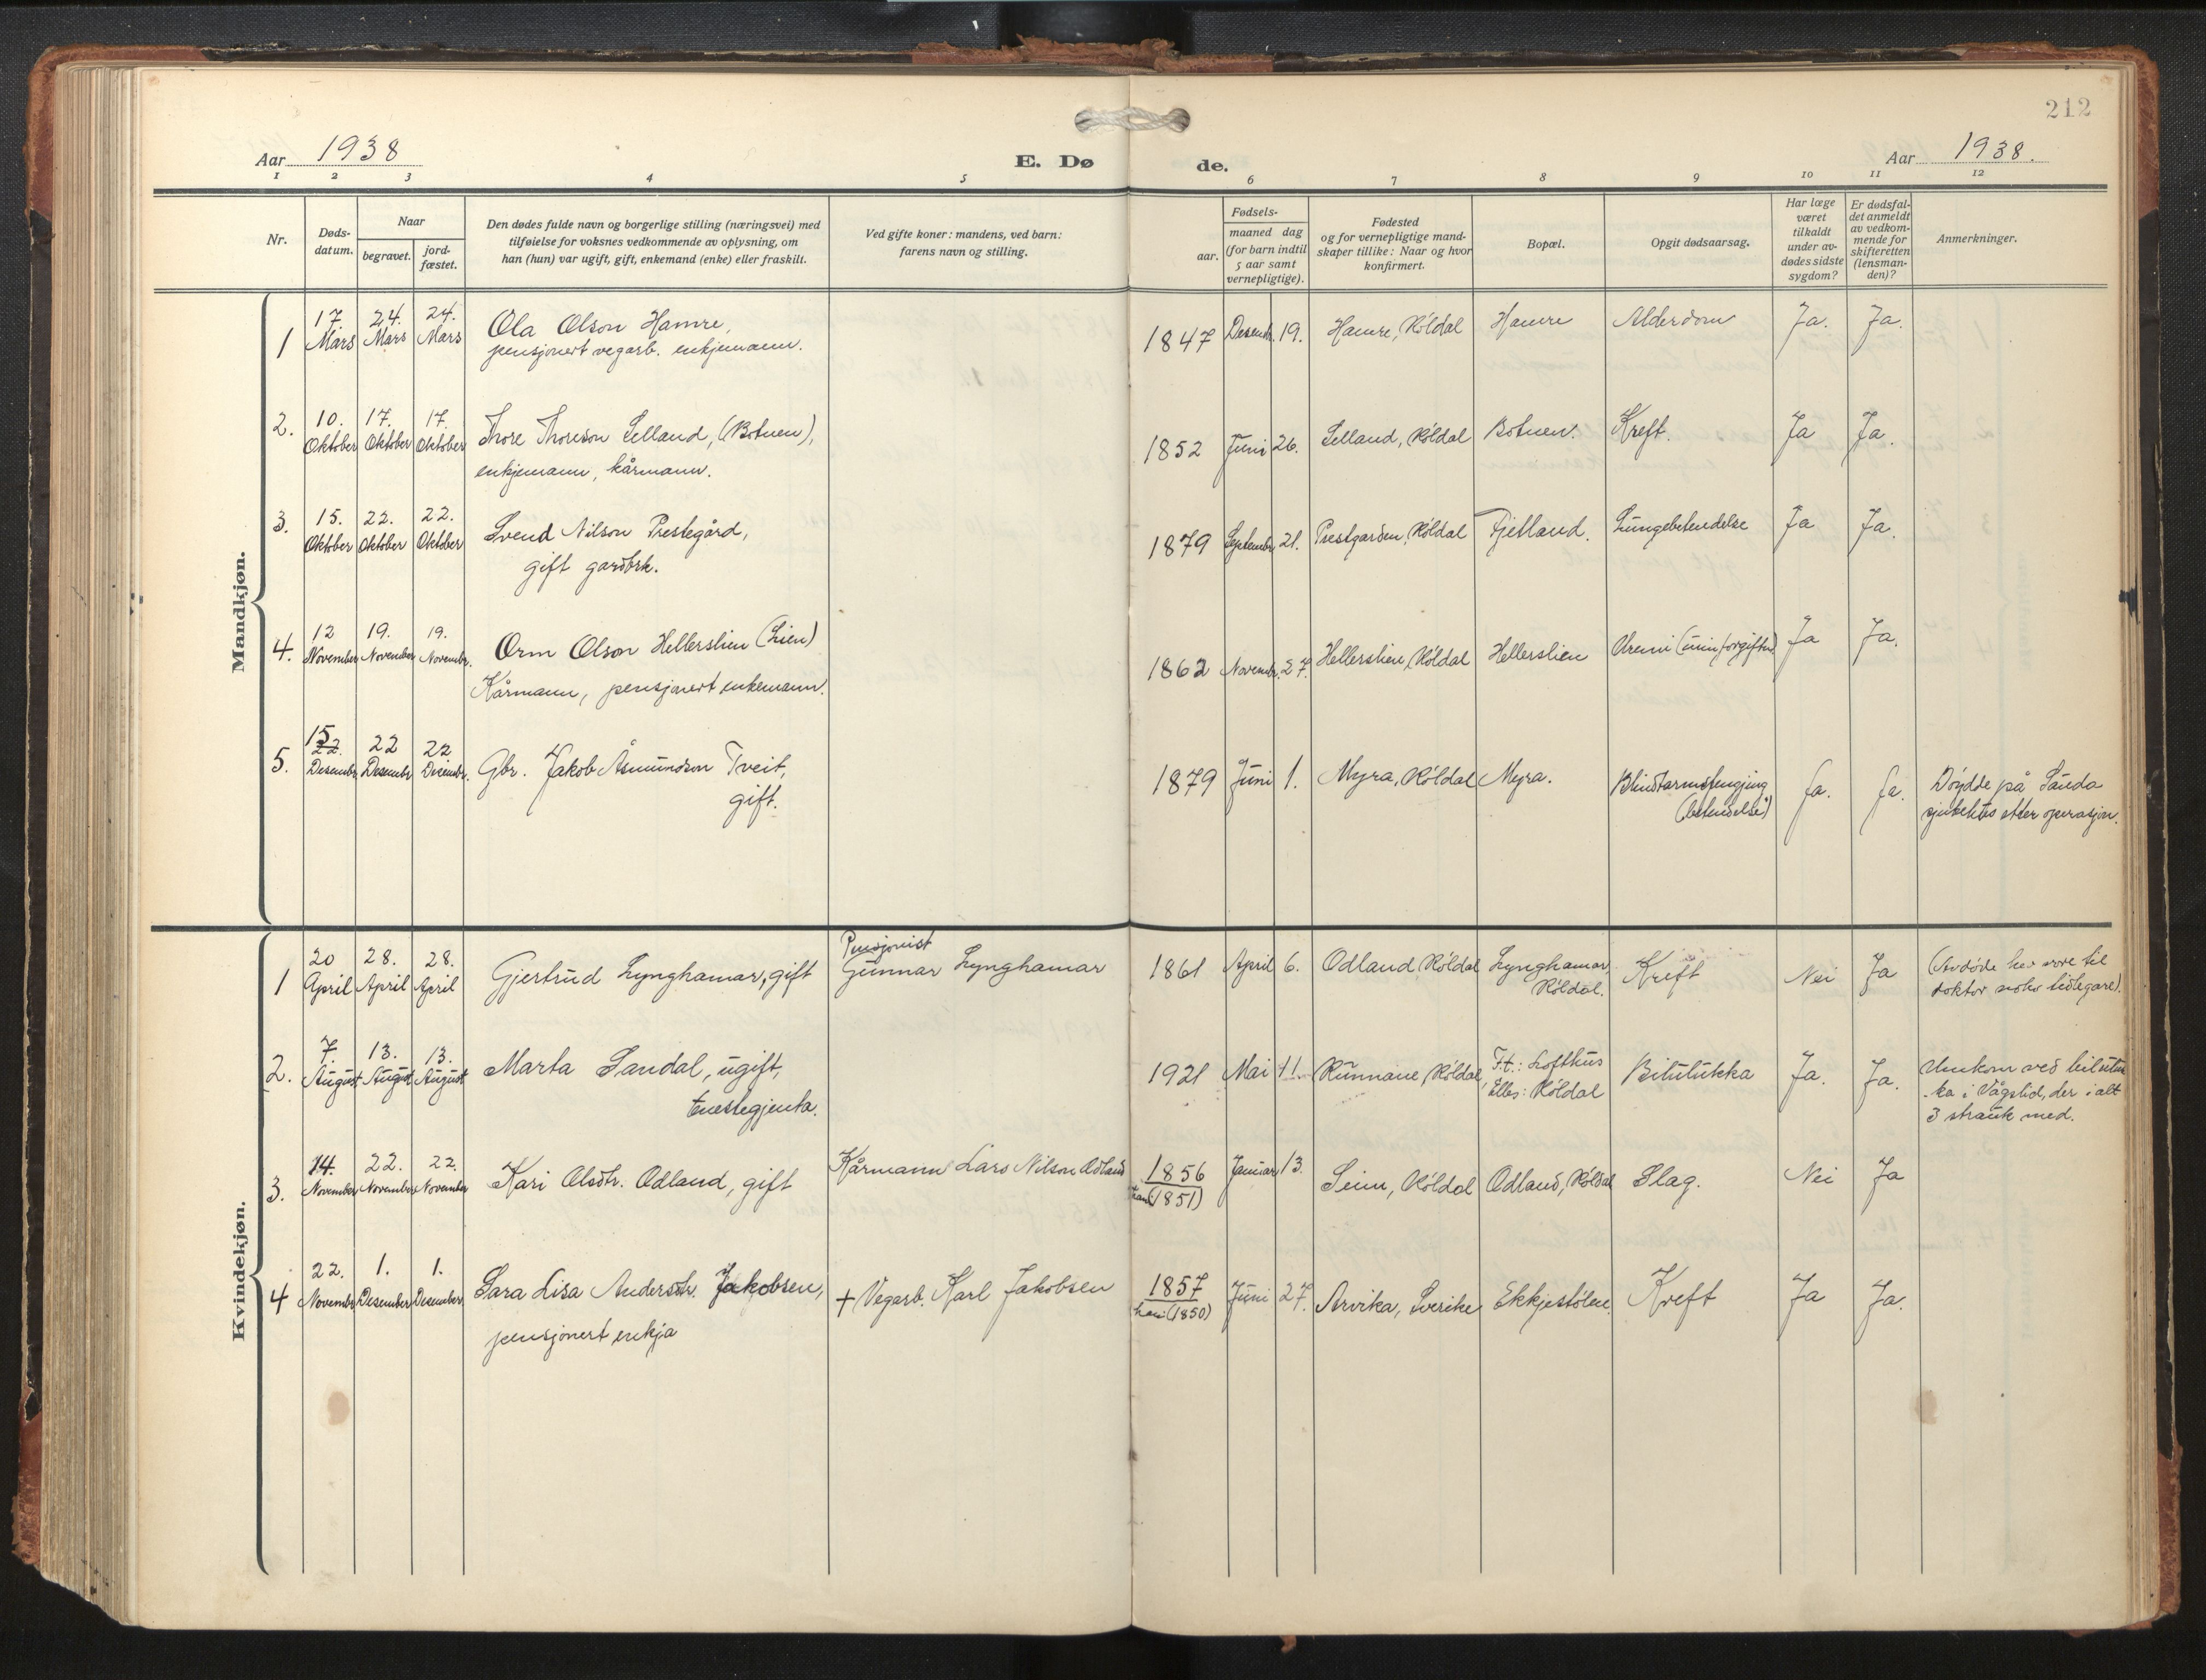 212
Aar 1938
E. Dø
de.
Aar 1938.
1 2 3 4 5 6 7 8 9 10 11 12
Nr.
Døds-
datum.
Naar
begravet.
jord-
fæstet.
Den dødes fulde navn og borgerlige stilling (næringsvei) med
tilføielse for voksnes vedkommende av oplysning, om
han (hun) var ugift, gift, enkemand (enke) eller fraskilt.
Ved gifte koner: mandens, ved barn:
farens navn og stilling.
Fødsels-
aar.
maaned dag
(for barn indtil
5 aar samt
vernepligtige).
Fødested
og for vernepligtige mand-
skaper tillike: Naar og hvor
konfirmert.
Bopæl.
Opgit dødsaarsag.
Har læge
været
tilkaldt
under av-
dødes sidste
sygdom?
Er dødsfal-
det anmeldt
av vedkom-
mende for
skifteretten
(lensman-
den)?
Anmerkninger.
Mandkjøn.
1 17 Mars 24. Mars 24. Mars Ola Olson Hamre, 1847 Desembr. 19. Hamre, Röldal Hamre Alderdom Ja. Ja.
pensjonert vegarb. enkjemann.
2. 10. Oktober 17. Oktober 17. Oktober Thore Thorsson Selland, (Botnen), 1852 Juni 26. Selland, Röldal Botnen. Kreft. Ja Ja.
enkjemann, kårmann.
3. 15. Oktober 22. Oktober 22. Oktober Svend Nilson Prestegård, 1879 Septembr 21. Prestgarden, Röldal Fjetland. Lungebetendelse Ja Ja.
gift gardbrk.
4. 12 November 19. November 19. Novembr. Orm Olson Hellerslien (Lien) 1862 Novembr. 27. Hellerslien, Röldal Hellerslien Uremi (urinforgiftn) Ja Ja.
Kårmann, pensjonert enkemann.
5. 15 22. Desembr 22 Desembr 22 Desembr. Gbr. Jakob Åsmundson Tveit, 1879 Juni 1. Myra, Röldal Myra. Blindtarms Ja. Ja. Döydde på Sauda
gift. (betendelse) sjukehus etter operasjon.
Kvindekjøn.
1 20 April 28. April 28. April Gjertrud Lynghamar, gift Pensjonist
Gunnar Lynghamar 1861 April 6. Odland, Röldal Lynghamar, Kreft Nei Ja (Avdöde har vore til
Röldal. doktor noko tidlegare).
2. 7. August 13. August 13. August Marta Sandal, ugift, 1921 Mai 11. Runnane, Röldal F.t.: Lofthus Bilulukka Ja. Ja. Umkom ved bilulu
tenestegjenta. Elles: Röldal -ka i Vågslid, der i alt
3 strauk med.
3. 14. November 22. November 22. November Kari Olsdtr. Odland, gift Kårmann Lars Nilson Odland 1856 Januar 13. Seim, Röldal Odland, Röldal Slag. Nei Ja
han (1851)
4 22. Novembr 1. Desember 1. Desember. Sara Lisa Andersdtr. Jakobsen, + Vegarb. Karl Jakobsen 1857 Juni 27. Arvika, Sverike Ekkjestölen. Kreft Ja Ja.
pensjonert enkja han (1850)